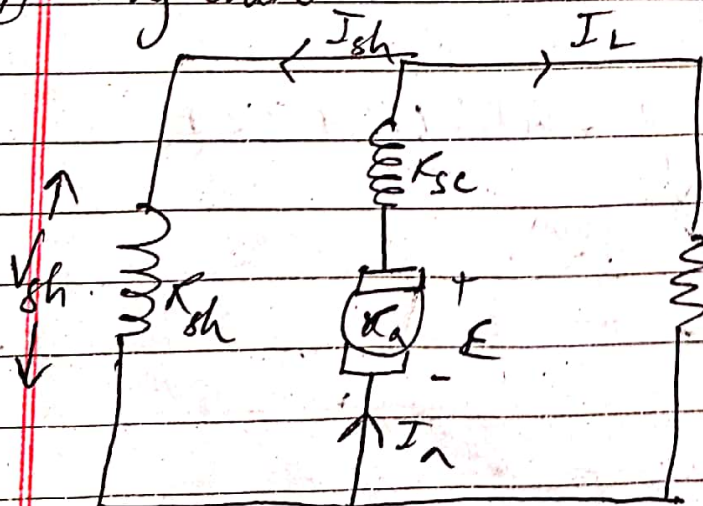 Ish
IL
Rse
Vsh
Rsh
Ra
+
E
-
Ia